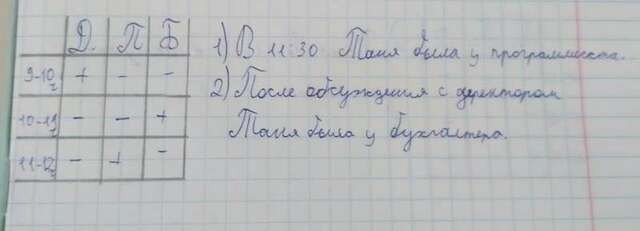 Д. П Б
9-10ч + - -
10-11ч - - +
11-12ч - + -
1) В 11:30 Таня была у программиста.
2) После обсуждения с директором
Таня была у бухгалтера.